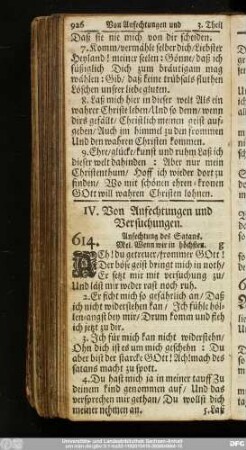 926 Von Anfechtungen und 3. Theil
Daß sie nie mich von dir scheiden.
7. Komm/vermähle selber dich/Liebster
Heyland! meiner seelen: Gönne/daß ich
süßiglich Dich zum bräutigam mag
wählen: Gib/ daß keine trübsals fluthen
Löschen unsrer liebe gluten.
8. Laß mich hier in dieser welt Als ein
wahrer Christe leben/Und so denn/wenn
dirs gefällt/ Christlich meinen geist auf-
geben/ Auch im himmel zu den frommen
Und den wahren Christen kommen.
9. Ehre/glücke/kunst und ruhm Laß ich
dieser welt dahinden : Aber nur mein
Christenthum/ Hoff ich wieder dort zu
finden/ Wo mit schönen ehren-kronen
GOtt will wahren Christen lohnen.
IV. Von Anfechtungen und
Versuchungen.
Anfechtung des Satans.
614. Mel. Wenn wir in höchsten. g
ACh! du getreuer/frommer GOtt!
Der böse geist bringt mich in noth/
Er setzt mir mit versuchung zu/
Und läßt mir weder rast noch ruh.
2. Er ficht mich so gefährlich an/ Daß
ich nicht widerstehen kan/ Ich fühle höl-
len-angst bey mir/ Drum komm und steh
ich jetzt zu dir.
3. Ich für mich kan nicht widerstehn/
Ohn dich ist es um mich geschehn : Du
aber bist der starcke GOtt! Ach!mach des
satans macht zu spott.
4. Du hast mich ja in meiner tauff Zu
deinem kind genommen auf/ Und das
versprechen mir gethan/ Du wollst dich
meiner nehmen an.
5. Laß